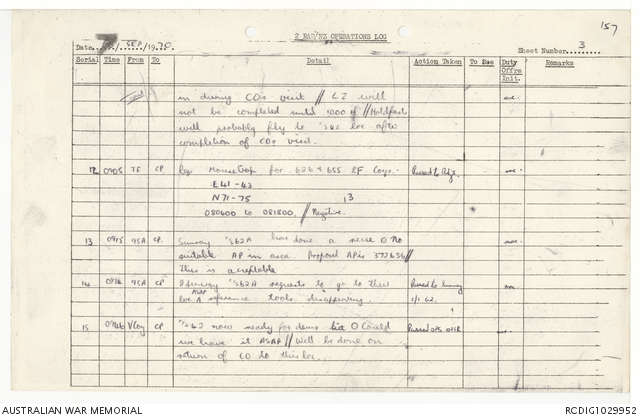 157
2 RAR/NZ OPERATIONS LOG
Date 7 / SEP /1970. Sheet Number 3
Serial Time From To Detail Action Taken To See Duty Offrs Init. Remarks
in during COs visit // LZ will
not be completed until 1000 H // Holdfast
will probably fly to loc after
completion of COs visit.
12 0905 TF CP Req Mousetrap for 626 & 655 EF Coys.
E41-43
N71-75 13
080600 to 081800. // Negative.
13 0915 95A CP. Sunray has done a recce O no
suitable AP in area Proposed AP is 577636 //
This is acceptable
14 95A CP Sunray requests to go to their
loc ASAP reference tools Passed to Sunray
15 V Coy CP now ready for demo O Could
we have it ASAP // Will be done on Passed OPS OFFR
return of CO to this loc.
AUSTRALIAN WAR MEMORIAL RCDIG1029952